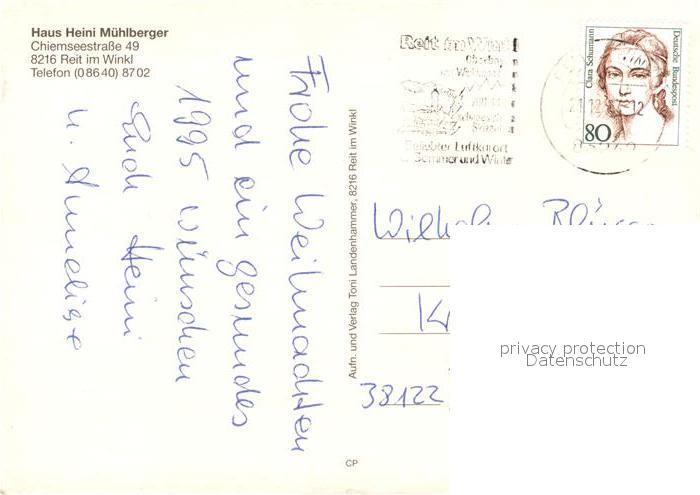 Haus Heini Mühlberger
Chiemseestraße 49
8216 Reit im Winkl
Telefon (0 86 40) 87 02
Frohe Weihnachten
und ein gesundes
1995 wünschen
Euch Heini
u. Annelise
Aufn. und Verlag Toni Landenhammer, 8216 Reit im Winkl
CP
Reit im Winkl
Beliebter Luftkurort
Sommer und Winter
Clara Schumann
Deutsche Bundespost
80
Wilhelm
38122
privacy protection
Datenschutz